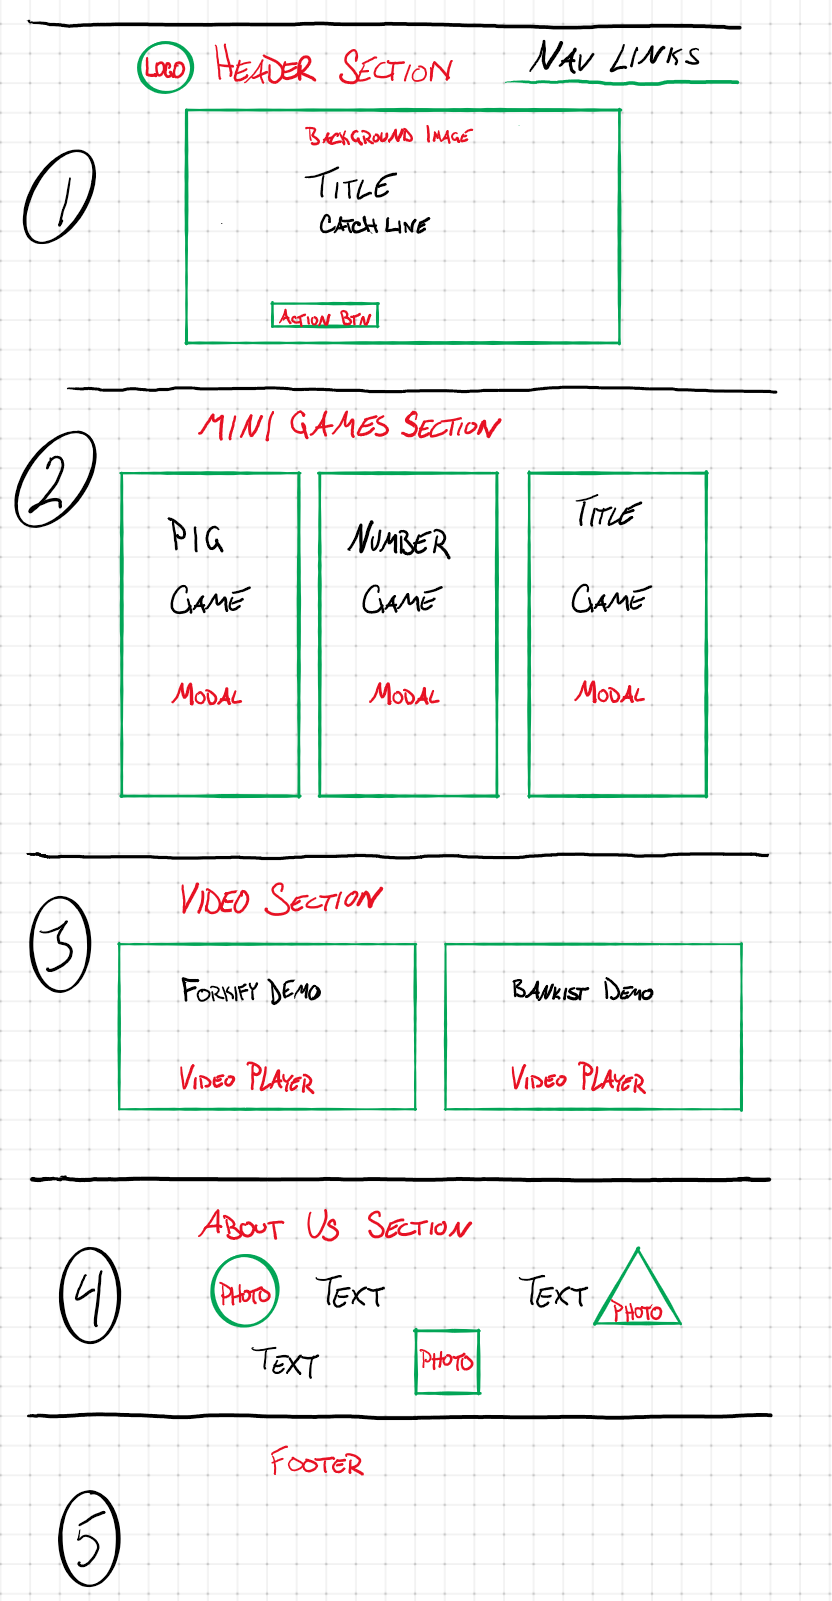 LOGO HEADER SECTION NAV LINKS
1
BACKGROUND IMAGE
TITLE
CATCH LINE
ACTION BTN
MINI GAMES SECTION
2
PIG
GAME
MODAL
NUMBER
GAME
MODAL
TITLE
GAME
MODAL
VIDEO SECTION
3
FORKIFY DEMO
VIDEO PLAYER
BANKIST DEMO
VIDEO PLAYER
ABOUT US SECTION
4
PHOTO TEXT
TEXT PHOTO
TEXT PHOTO
FOOTER
5